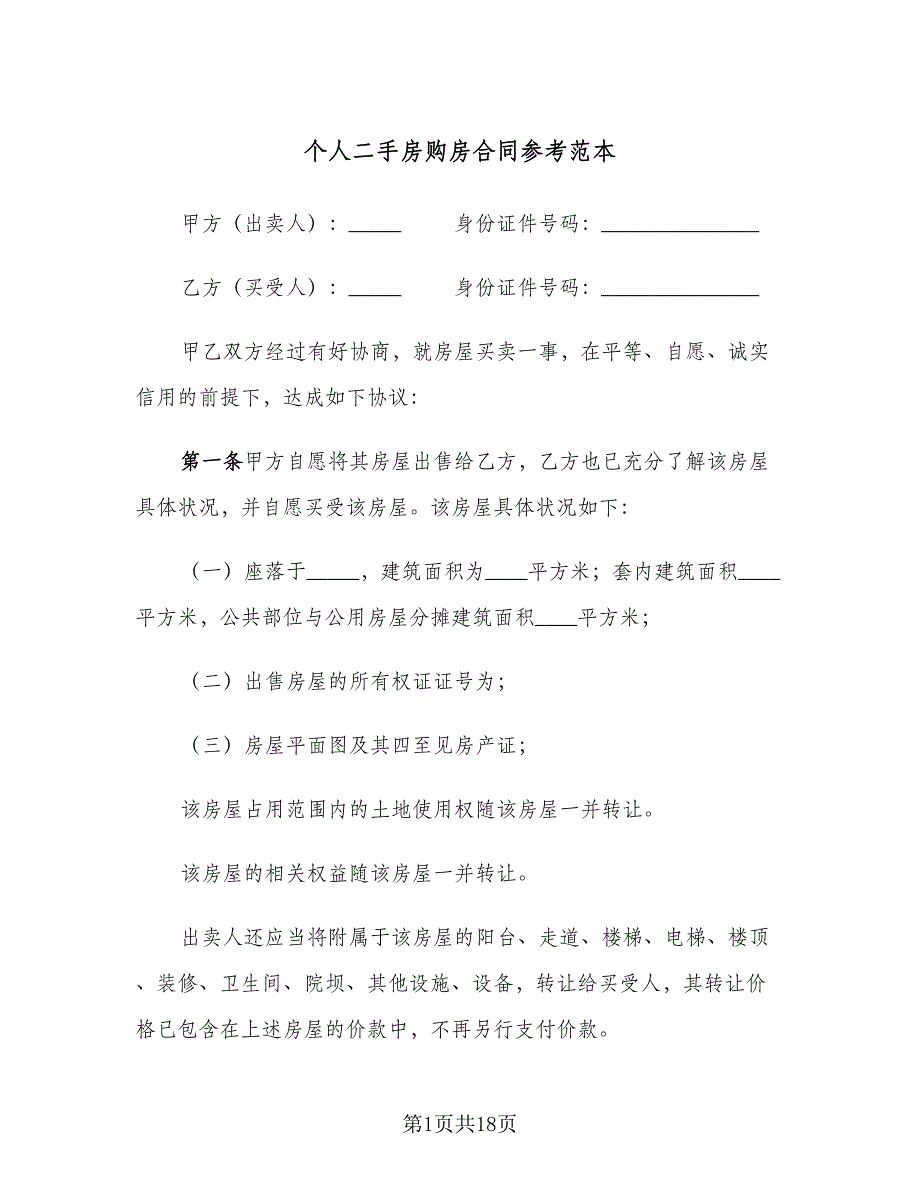 个人二手房购房合同参考范本
甲方（出卖人）：_____ 身份证件号码：_______________
乙方（买受人）：_____ 身份证件号码：_______________
甲乙双方经过有好协商，就房屋买卖一事，在平等、自愿、诚实
信用的前提下，达成如下协议：
第一条甲方自愿将其房屋出售给乙方，乙方也已充分了解该房屋
具体状况，并自愿买受该房屋。该房屋具体状况如下：
（一）座落于_____，建筑面积为____平方米；套内建筑面积____
平方米，公共部位与公用房屋分摊建筑面积____平方米；
（二）出售房屋的所有权证证号为；
（三）房屋平面图及其四至见房产证；
该房屋占用范围内的土地使用权随该房屋一并转让。
该房屋的相关权益随该房屋一并转让。
出卖人还应当将附属于该房屋的阳台、走道、楼梯、电梯、楼顶
、装修、卫生间、院坝、其他设施、设备，转让给买受人，其转让价
格已包含在上述房屋的价款中，不再另行支付价款。
第1页共18页